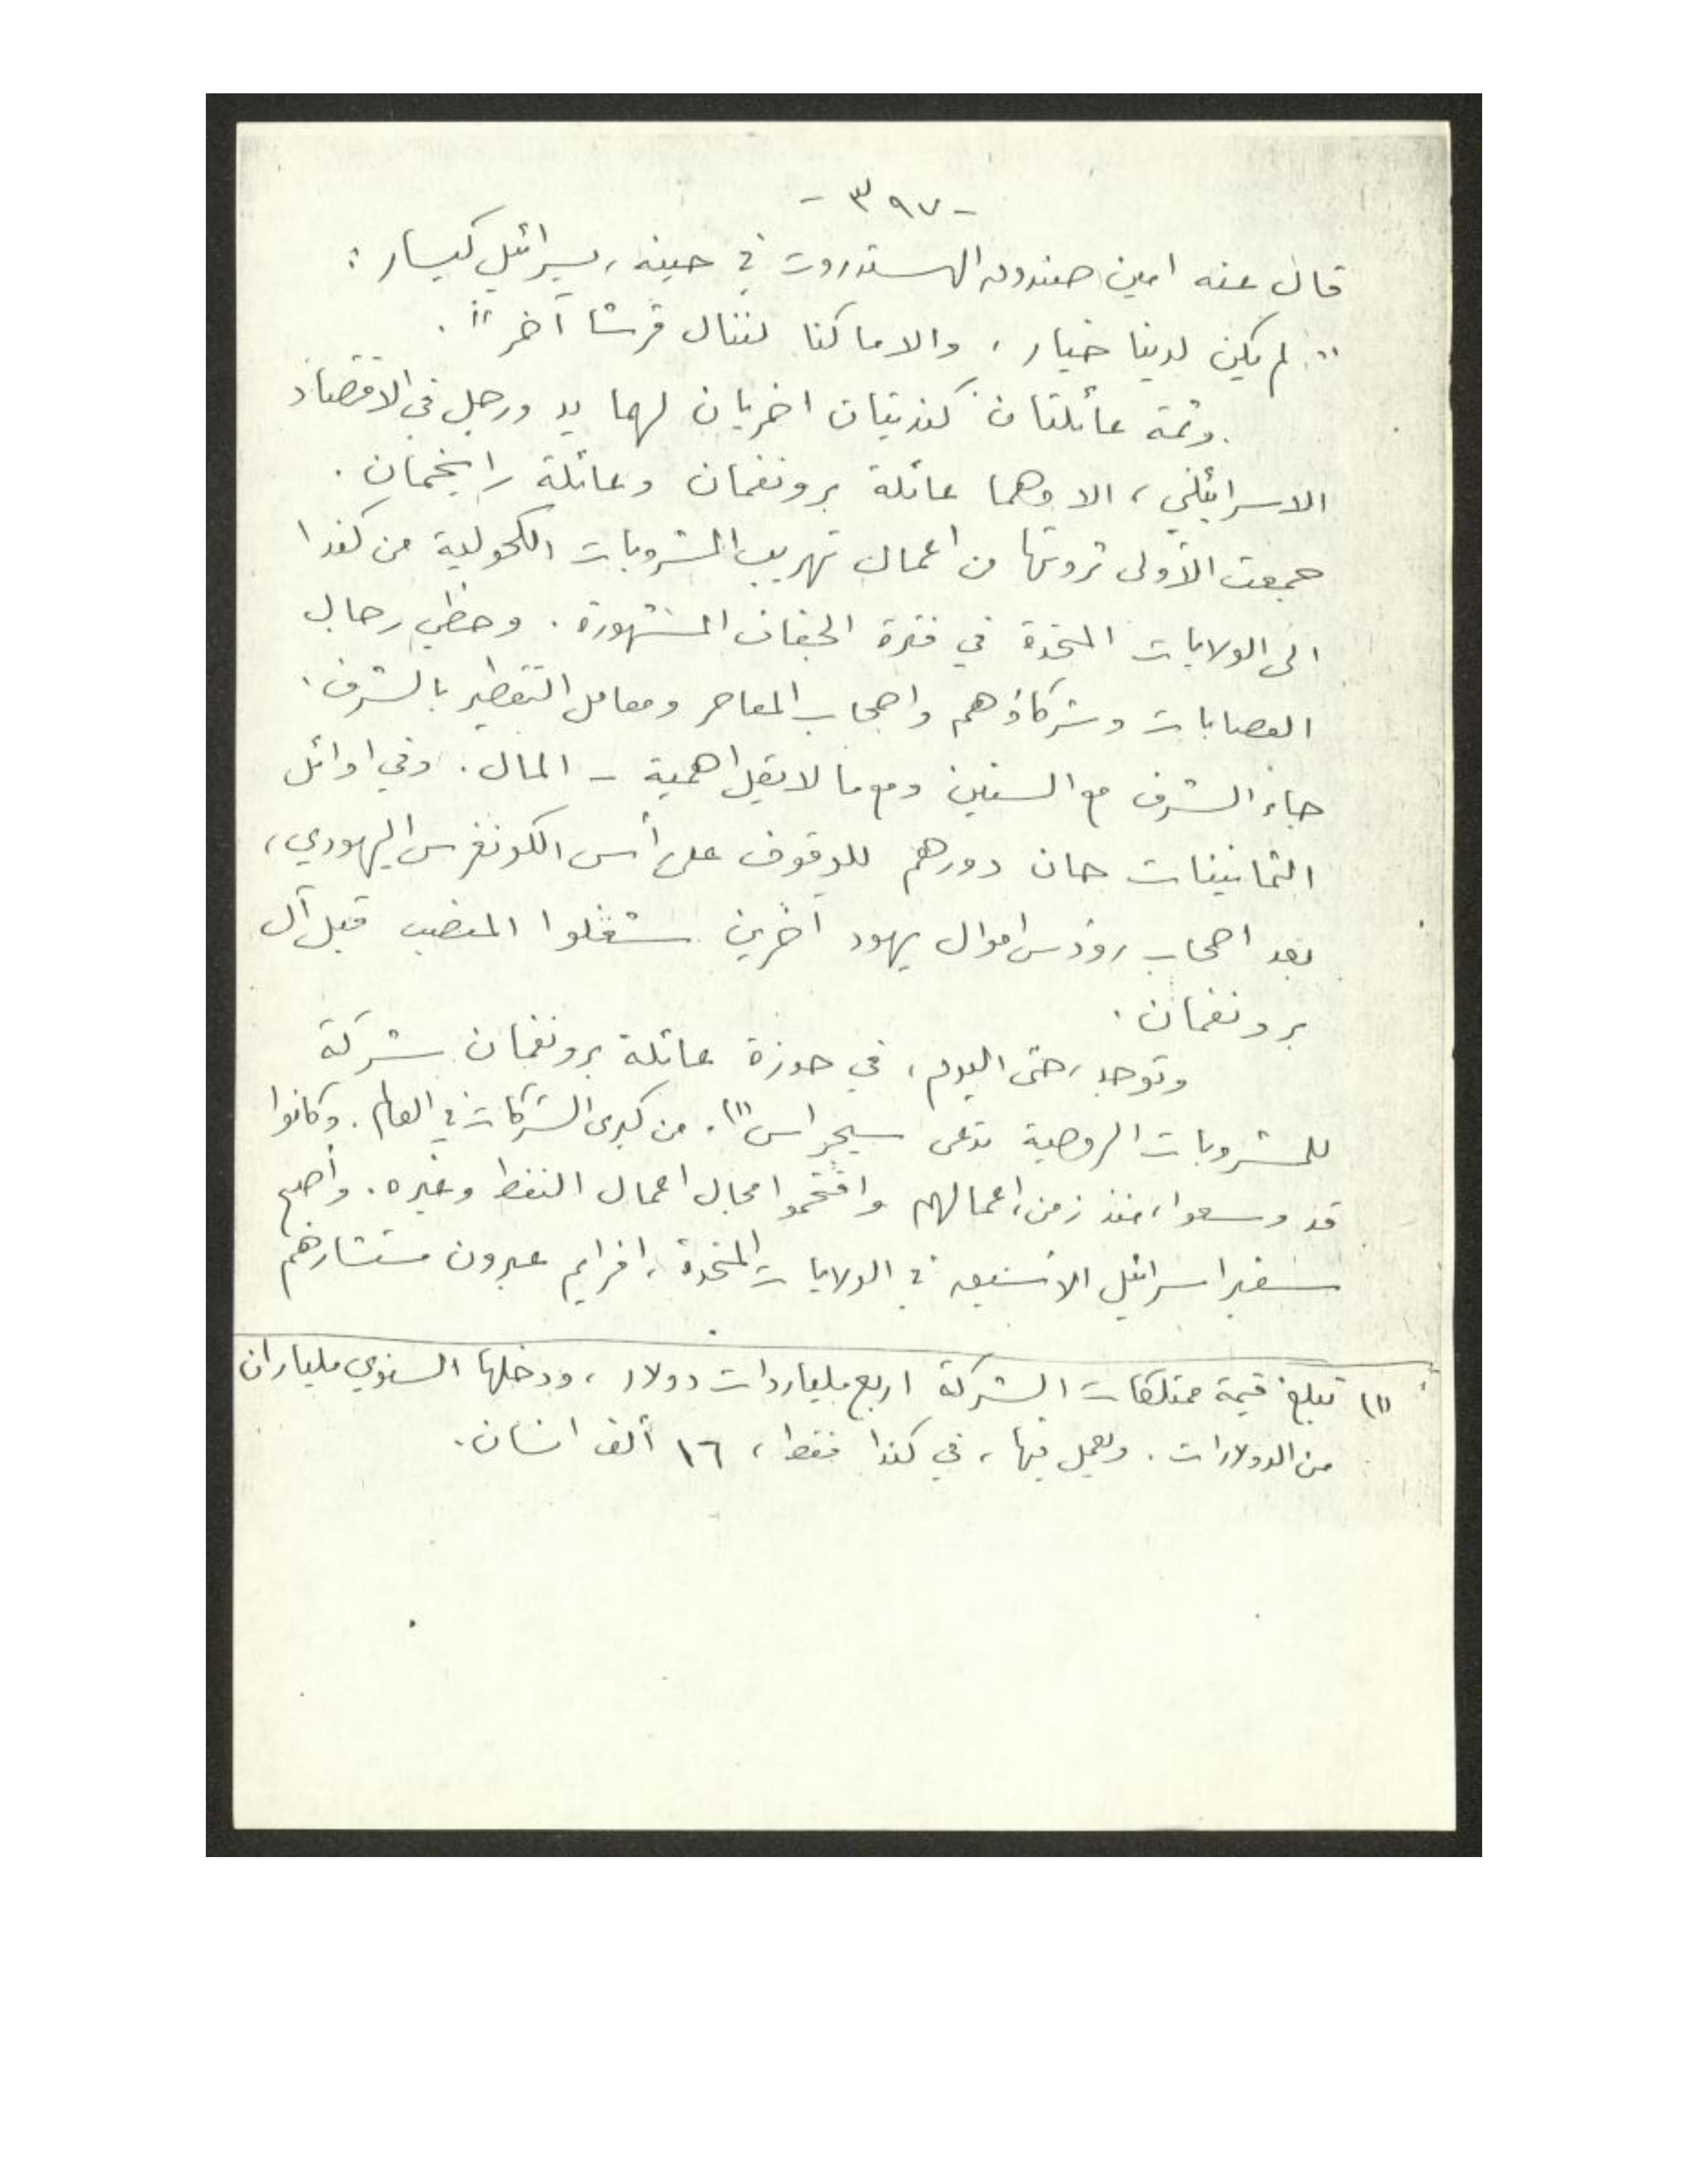 - ٣٩٧ -
قال عنه امين صندوق الهستدروت في حينه، يسرائيل كيسار :
"لم يكن لدينا خيار ، والا ما كنا لننال قرشا آخر" .
وثمة عائلتان كنديتان اخريان لهما يد ورجل في الاقتصاد
الاسرائيلي ، الا وهما عائلة برونفمان وعائلة رايخمان .
جمعت الأولى ثروتها من اعمال تهريب المشروبات الكحولية من كندا
الى الولايات المتحدة في فترة الجفاف المشهورة . وحظي رجال
العصابات وشركاؤهم واصحاب المعاصر ومعامل التقطير بالشرف .
جاء الشرف مع السنين ومع ما لا يقل اهمية - المال . وفي اوائل
الثمانينات حان دورهم للوقوف على رأس الكونغرس اليهودي ،
بعد اصحاب رؤوس اموال يهود آخرين شغلوا المنصب قبل آل
برونفمان .
وتوجد ، حتى اليوم ، في حوزة عائلة برونفمان شركة
للمشروبات الروحية تدعى سيجراس (١) . من كبرى الشركات في العالم . وكانوا
قد وسعوا ، منذ زمن ، اعمالهم واقتحموا مجال اعمال النفط وغيره . وأصبح
سفير اسرائيل الأسبق في الولايات المتحدة ، افرايم عبرون مستشارهم
(١) تبلغ قيمة ممتلكات الشركة اربع مليارات دولار ، ودخلها السنوي ملياران
من الدولارات . ويعمل فيها ، في كندا فقط ، ١٦ ألف انسان .